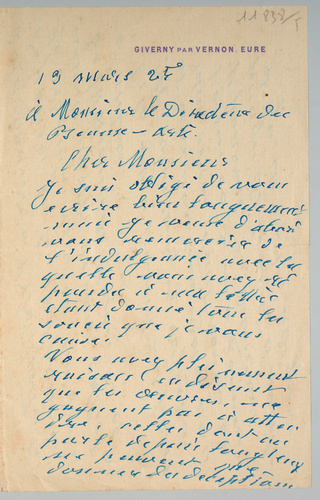 11838/5
GIVERNY PAR VERNON. EURE
19 mars 25
à Monsieur le Directeur des
Beaux-Arts.
Cher Monsieur
Je suis obligé de vous
écrire bien longuement
mais je veux d'abord
vous remercier de
l'indulgence avec la
quelle vous avez
étant donné tous les
soucis que je vous
cause.
Vous avez pleinement
raison en disant
que les œuvres, ne
gagnent pas à atten
dre, celles dont on
parle depuis longtemps
ne peuvent que